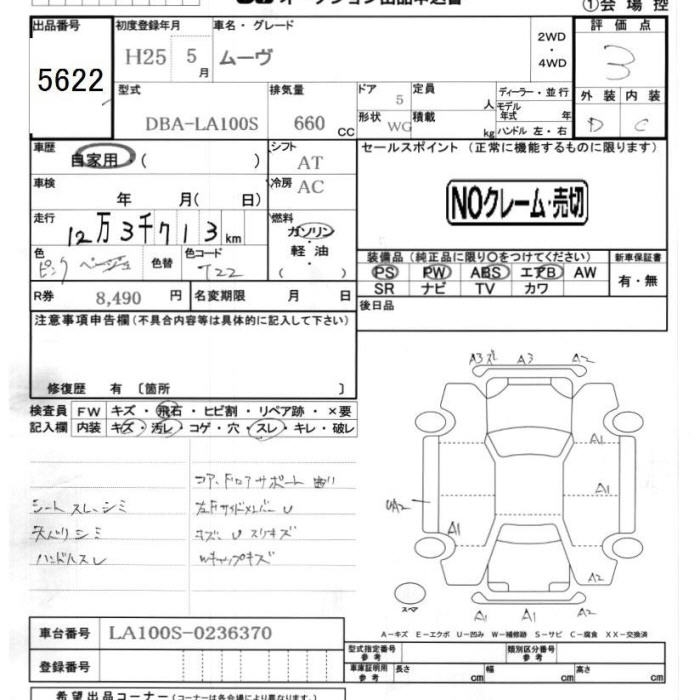 ①会場控
出品番号 初度登録年月 車名・グレード 評価点
5622 H25 5月 ムーヴ 2WD・4WD 3
型式 排気量 ドア 5 定員 人 ディーラー・並行 外装 内装
DBA-LA100S 660 CC 形状 WG 積載 kg モデル年式 年 ハンドル 左・右 D C
車歴 自家用 ( ) シフト AT セールスポイント(正常に機能するものに限ります)
車検 年 月( 日) 冷房 AC
NOクレーム・売切
走行 12万3千713km 燃料 ガソリン 軽油 ( )
色 ピンク ベージュ 色替 色コード T22
装備品(純正品に限り○をつけてください) 新車保証書
PS PW ABS エアB AW 有・無
SR ナビ TV カワ
R券 8,490円 名変期限 月 日 後日品
注意事項申告欄(不具合内容等は具体的に記入して下さい)
修復歴 有〔箇所 〕
検査員 FW キズ・飛石・ヒビ割・リペア跡・×要
記入欄 内装 キズ・汚レ・コゲ・穴・スレ・キレ・破レ
A3 A2
A1
A1
UA2
A1
A2
A1 A1
スペア
コアサポート
シート スレ、シミ
天バリ シミ
ハンドルスレ
Wキャップキズ
A-キズ E-エクボ U-凹み W-補修跡 S-サビ C-腐食 XX-交換済
車台番号 LA100S-0236370
型式指定番号 参考 類別区分番号 参考
登録番号 車庫証明用 参考 長さ cm 幅 cm 高さ cm
希望出品コーナー(コーナーは各会場により異なります)